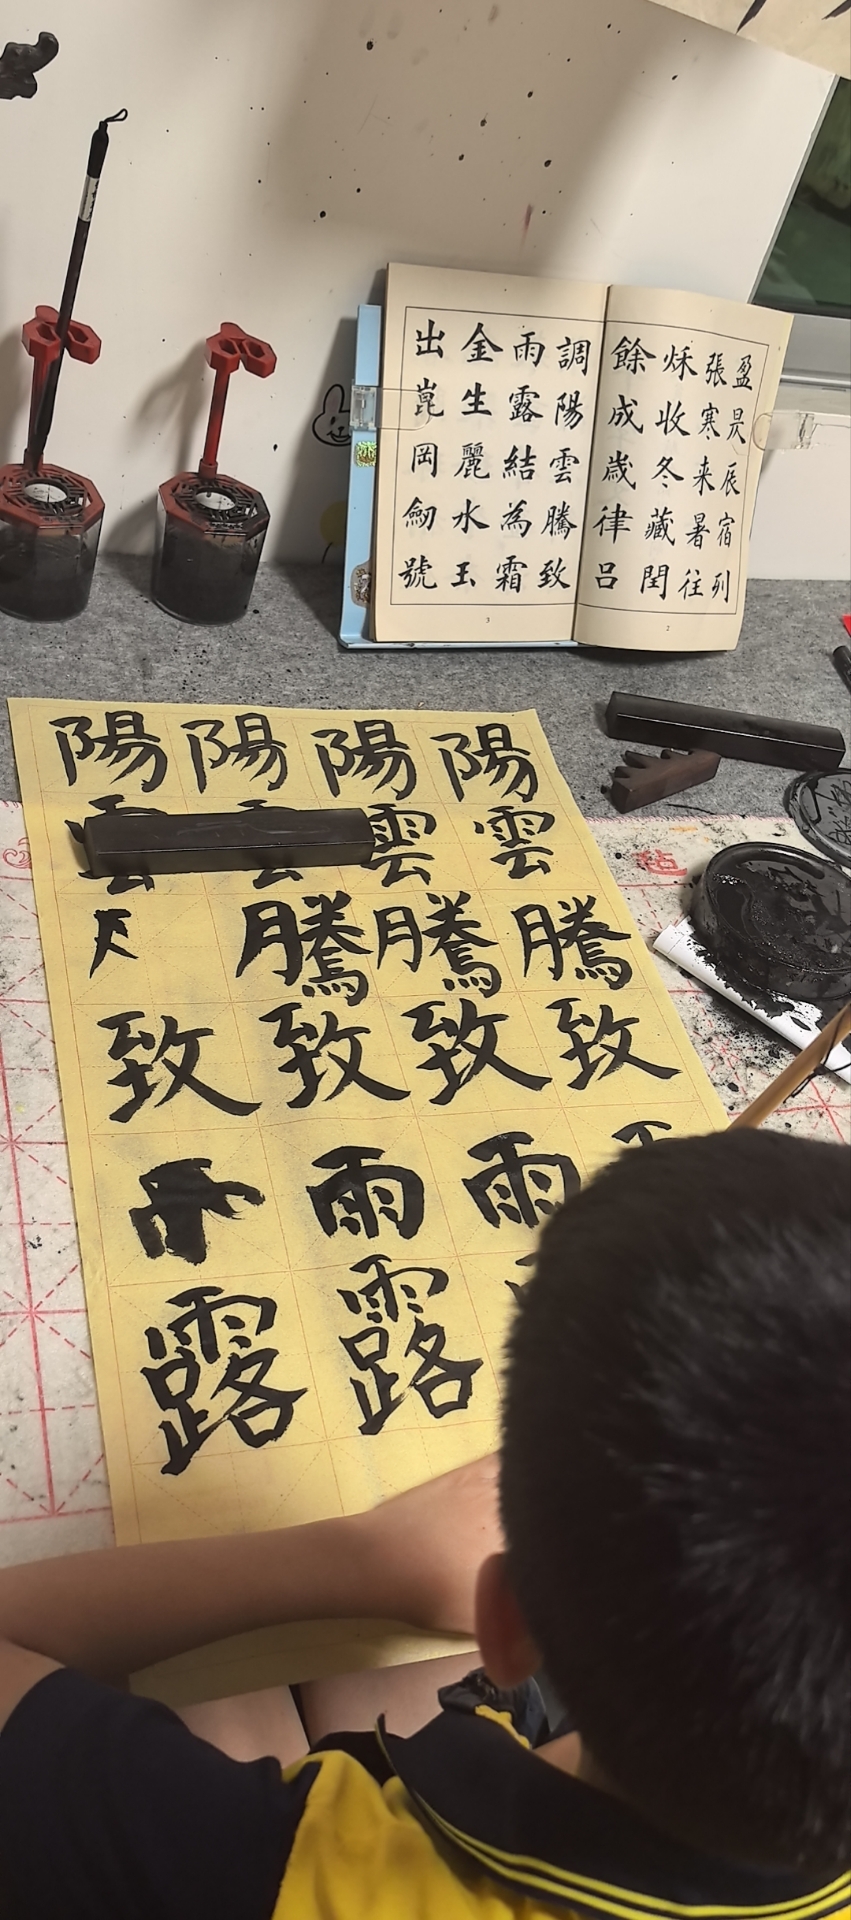 盈昃辰宿列
張寒来暑往
秌收冬藏閏
餘成歳律吕
2
調陽雲騰致
雨露結為霜
金生麗水玉
出崑岡劒號
3
陽陽陽陽
雲雲
騰騰騰
致致致致
雨雨
露露
毡